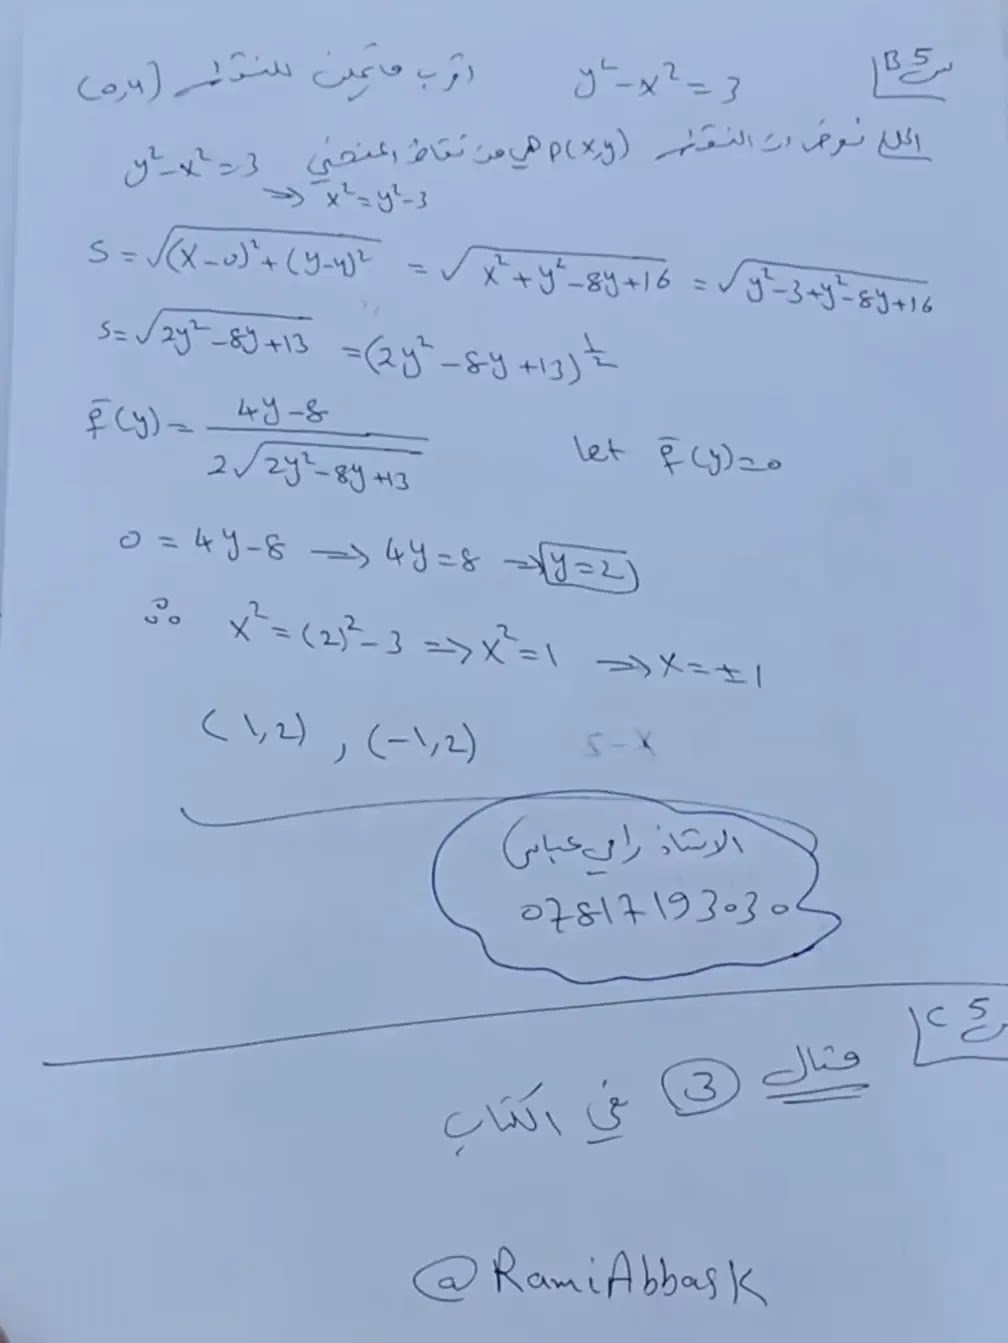 س5 B y² - x² = 3 اقرب ما يمكن للنقطة (0,4)
الحل/ نفرض ان النقطة p(x,y) هي من نقاط المنحني y² - x² = 3
⇒ x² = y² - 3
S = √((x-0)² + (y-4)²) = √(x² + y² - 8y + 16) = √(y² - 3 + y² - 8y + 16)
S = √(2y² - 8y + 13) = (2y² - 8y + 13)^½
f̄(y) = (4y - 8) / (2√(2y² - 8y + 13)) let f̄(y) = 0
0 = 4y - 8 ⇒ 4y = 8 ⇒ y = 2
∴ x² = (2)² - 3 ⇒ x² = 1 ⇒ x = ±1
(1,2) , (-1,2)
الاستاذ رامي عباس
07817193030
س5 C
مثال 3 في الكتاب
@RamiAbbasK